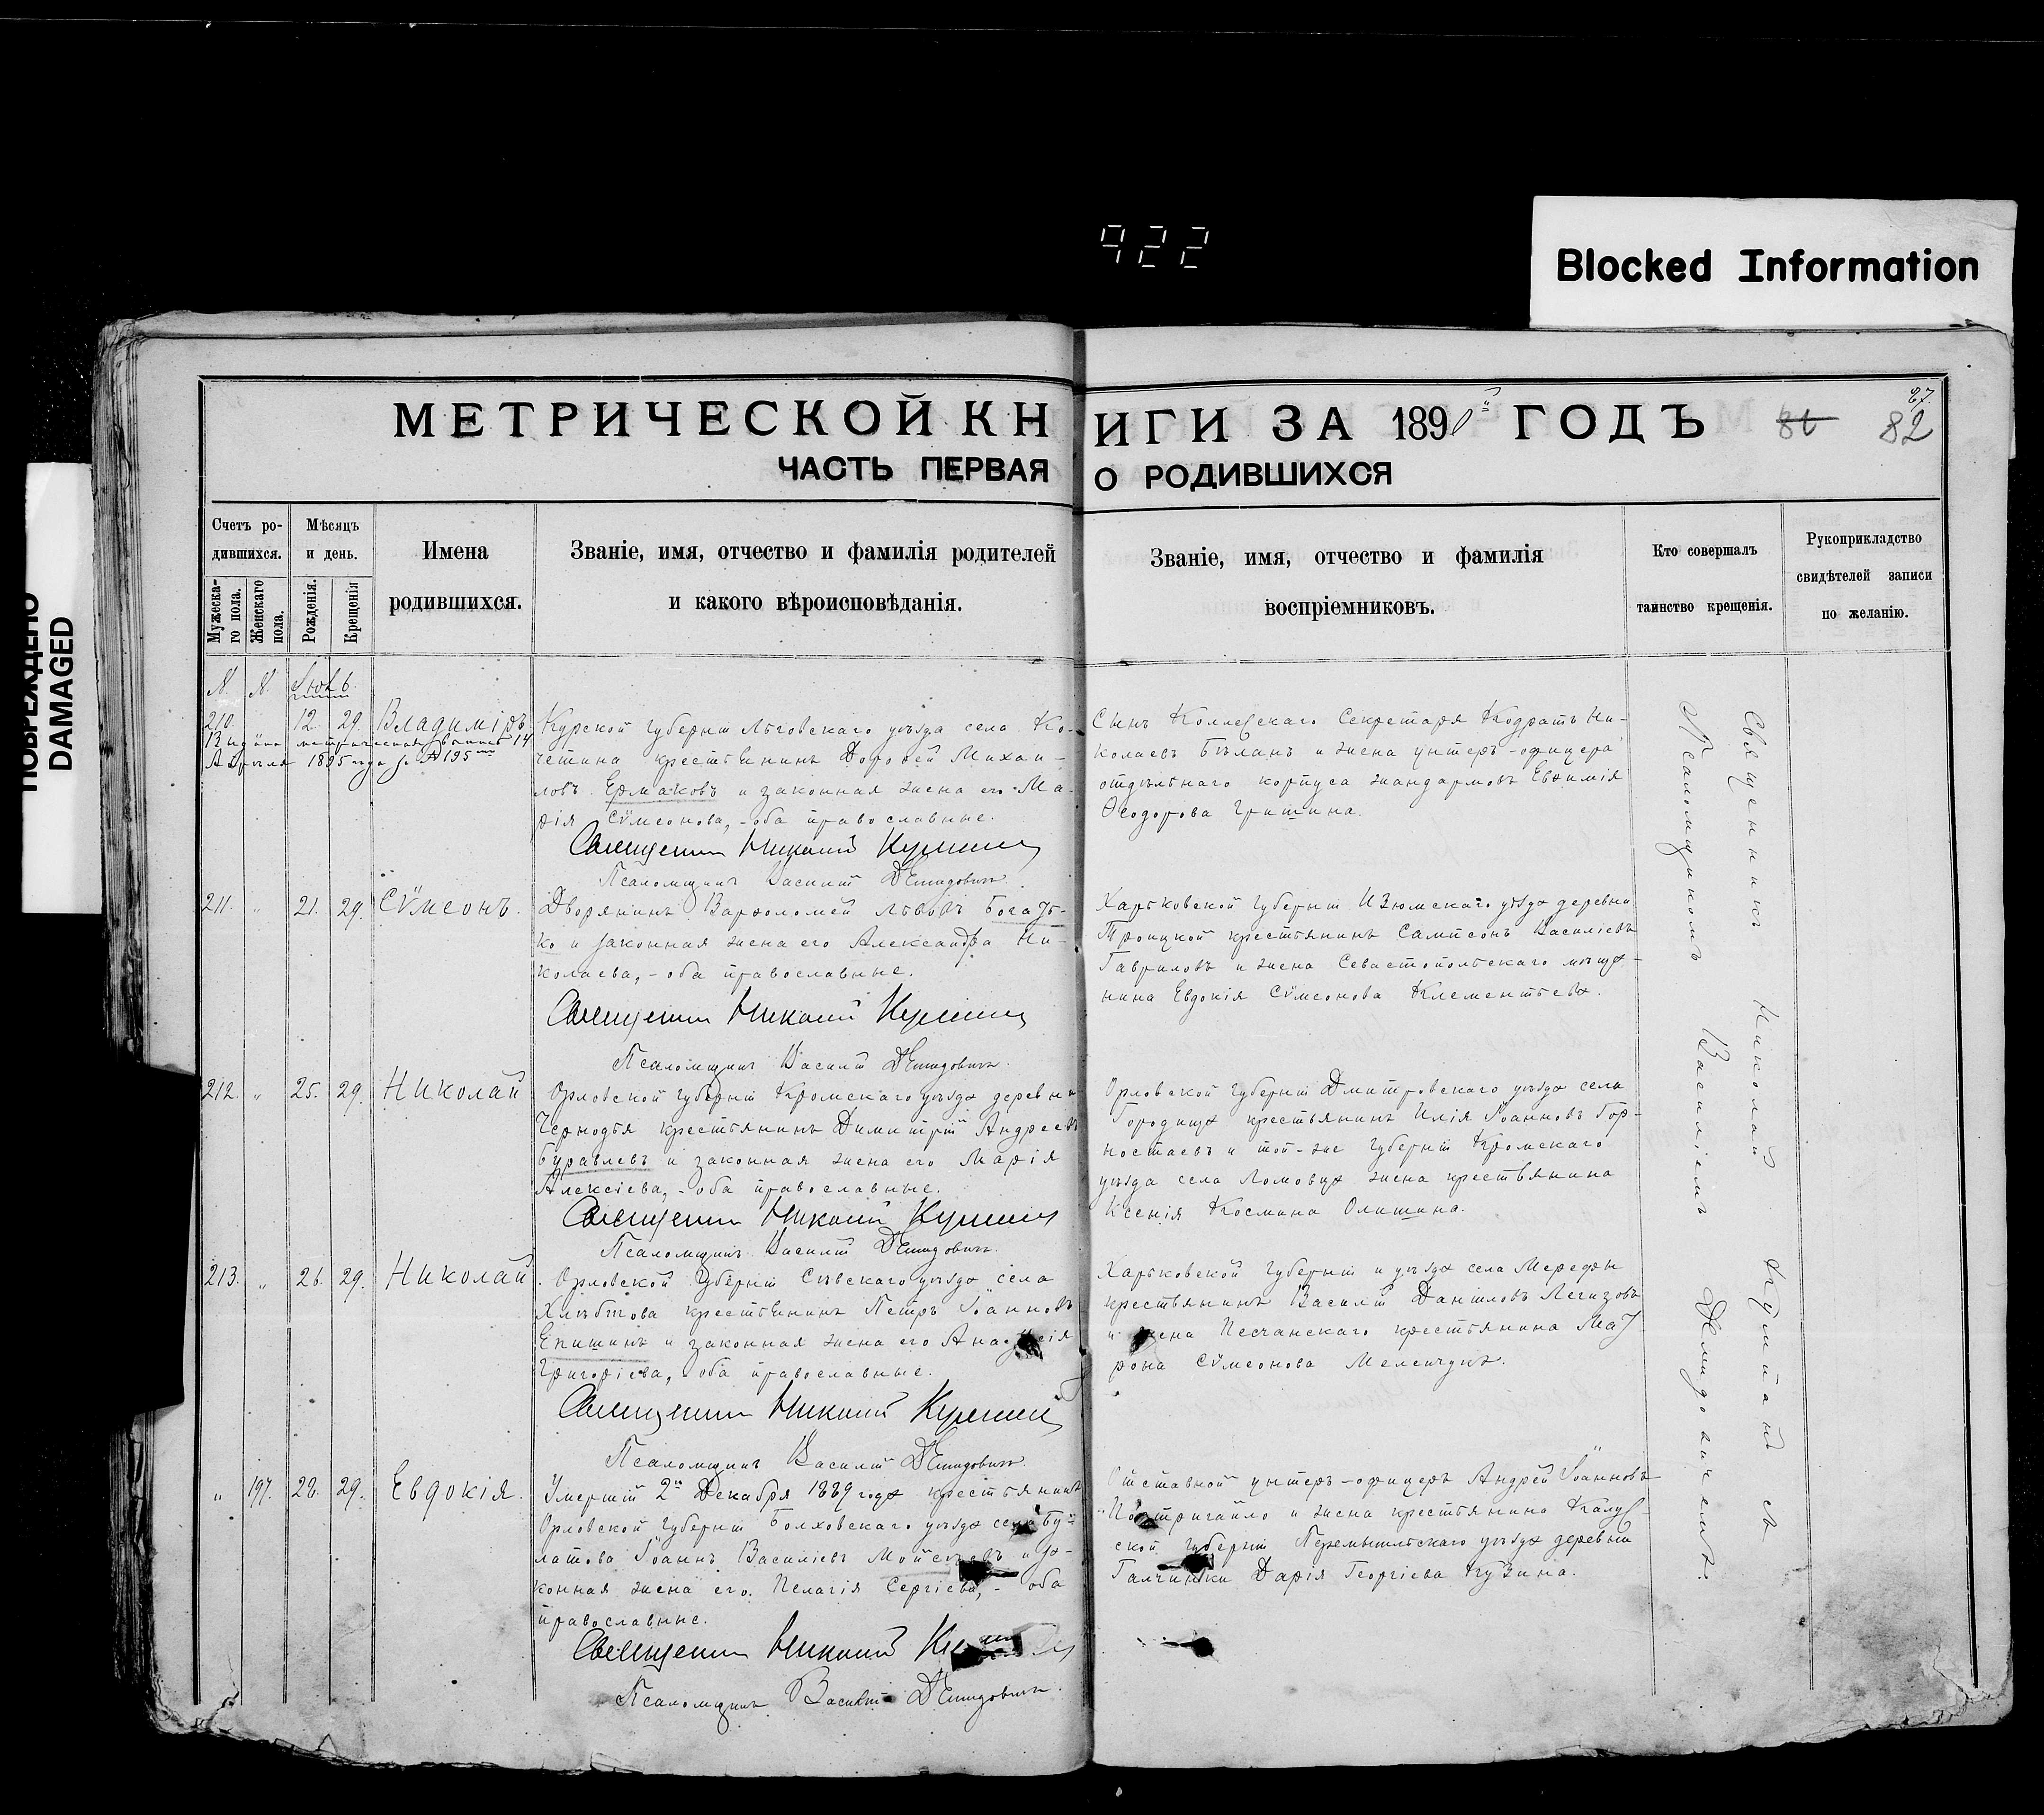 922
Blocked Information
ПОВРЕЖДЕНО
DAMAGED
МЕТРИЧЕСКОЙ КНИГИ ЗА 1890й ГОДЪ
87.
82
ЧАСТЬ ПЕРВАЯ О РОДИВШИХСЯ
Счетъ ро-
дившихся.
Мужеска-
го пола.
Женскаго
пола.
Мѣсяцъ
и день.
Рожденія.
Крещенія
Имена
родившихся.
Званіе, имя, отчество и фамилія родителей
и какого вѣроисповѣданія.
Званіе, имя, отчество и фамилія
воспріемниковъ.
Кто совершалъ
таинство крещенія.
Рукоприкладство
свидѣтелей записи
по желанію.
N. N.
210. 12. 29. Владиміръ.
Апрѣля 1895 года за № 195
Курской губерніи Льговскаго уѣзда села Ко-
четина крестьянинъ Дороѳей Михаи-
ловъ Ермаковъ и законная жена его Ма-
рія Сѵмеонова, - оба православные.
Священникъ Николай
Псаломщикъ Василій Демидовичъ.
Сынъ Коллежскаго Секретаря Кодратъ Ни-
колаевъ Бѣланъ и жена унтеръ-офицера
отдѣльнаго корпуса жандармовъ Евѳимія
Ѳеодорова Гришина.
211. " 21. 29. Сѵмеонъ.
Дворянинъ Варѳоломей Львовъ Богать-
ко и законная жена его Александра Ни-
колаева, - оба православные.
Священникъ Николай
Псаломщикъ Василій Демидовичъ.
Харьковской губерніи Изюмскаго уѣзда деревни
Троицкой крестьянинъ Сампсонъ Василіевъ
Гавриловъ и жена Севастопольскаго мѣща-
нина Евдокія Сѵмеонова Клементьева.
212. " 25. 29. Николай
Орловской губерніи Кромскаго уѣзда деревни
Чернодья крестьянинъ Димитрій Андреевъ
Буравлевъ и законная жена его Марія
Алексіева, - оба православные.
Священникъ Николай
Псаломщикъ Василій Демидовичъ.
Орловской губерніи Дмитровскаго уѣзда села
Городища крестьянинъ Илія Іоанновъ Гор-
ностаевъ и той-же губерніи Кромскаго
уѣзда села Ломовца жена крестьянина
Ксенія Космина Олишина.
213. " 26. 29. Николай.
Орловской губерніи Сѣвскаго уѣзда села
Хлѣбтова крестьянинъ Петръ Іоанновъ
Епишинъ и законная жена его
Григоріева, - оба православные.
Священникъ Николай
Псаломщикъ Василій Демидовичъ.
Харьковской губерніи и уѣзда села Мерефы
крестьянинъ Василій Даніиловъ Легизовъ
и жена Песчанскаго крестьянина Мат-
рона Сѵмеонова Мелещукъ.
" 197. 28. 29. Евдокія.
Умершій 2го Декабря 1889 года крестьянинъ
Орловской губерніи Болховскаго уѣзда села Бу-
латова Іоаннъ Василіевъ Мойсеевъ и за-
конная жена его Пелагія Сергіева, - оба
православные.
Священникъ Николай
Псаломщикъ Василій Демидовичъ.
Отставной унтеръ-офицеръ Андрей Іоанновъ
Постригайло и жена крестьянина Калуж-
ской губерніи Перемышльскаго уѣзда деревни
Галчинки Дарія Георгіева Кузина.
Священникъ Николай съ
Псаломщикомъ Василіемъ Демидовичемъ.